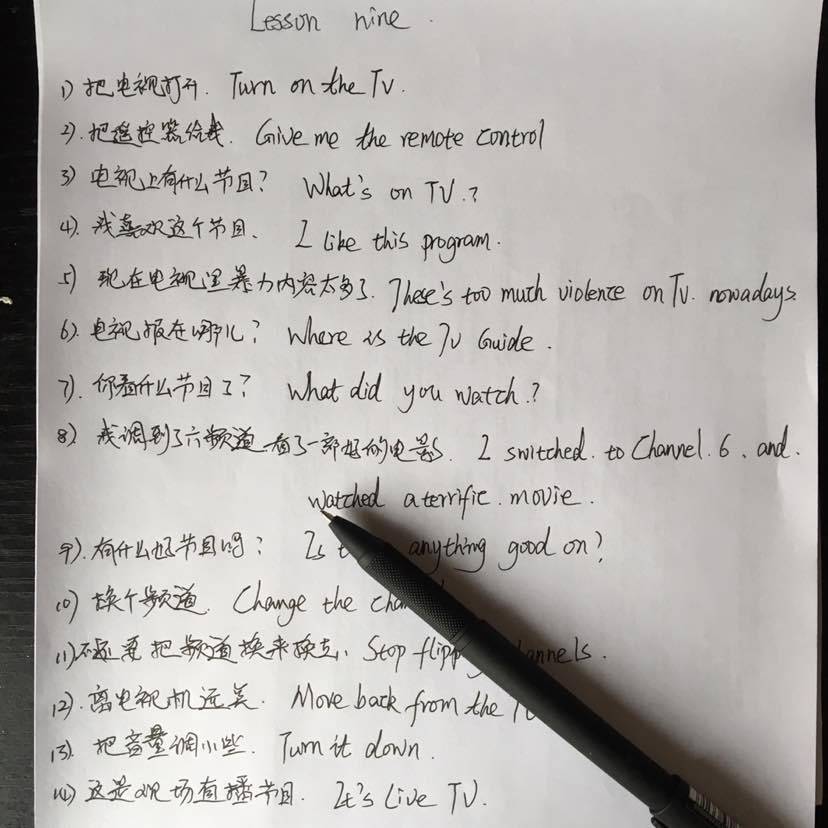 Lesson nine.
1) 把电视打开. Turn on the TV.
2). 把遥控器给我. Give me the remote control
3) 电视上有什么节目? What's on TV.?
4). 我喜欢这个节目. I like this program.
5) 现在电视里暴力内容太多了. There's too much violence on TV. nowadays.
6). 电视报在哪儿? Where is the TV Guide.
7). 你看什么节目了? What did you watch.?
8) 我调到了六频道看了一部好的电影. I switched. to Channel. 6. and.
watched a terrific. movie.
9). 有什么好节目吗? Is anything good on?
10) 换个频道. Change the
11) 不要把频道换来换去. Stop
12). 离电视机远关. Move back from the TV
13). 把音量调小些. Turn it down.
14) 这是现场直播节目. It's Live TV.